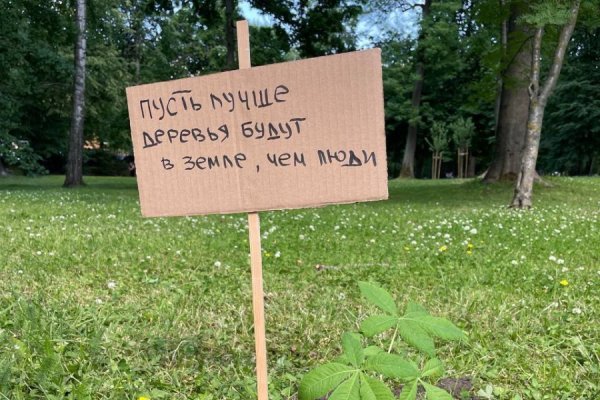 пусть лучше
деревья будут
в земле, чем люди